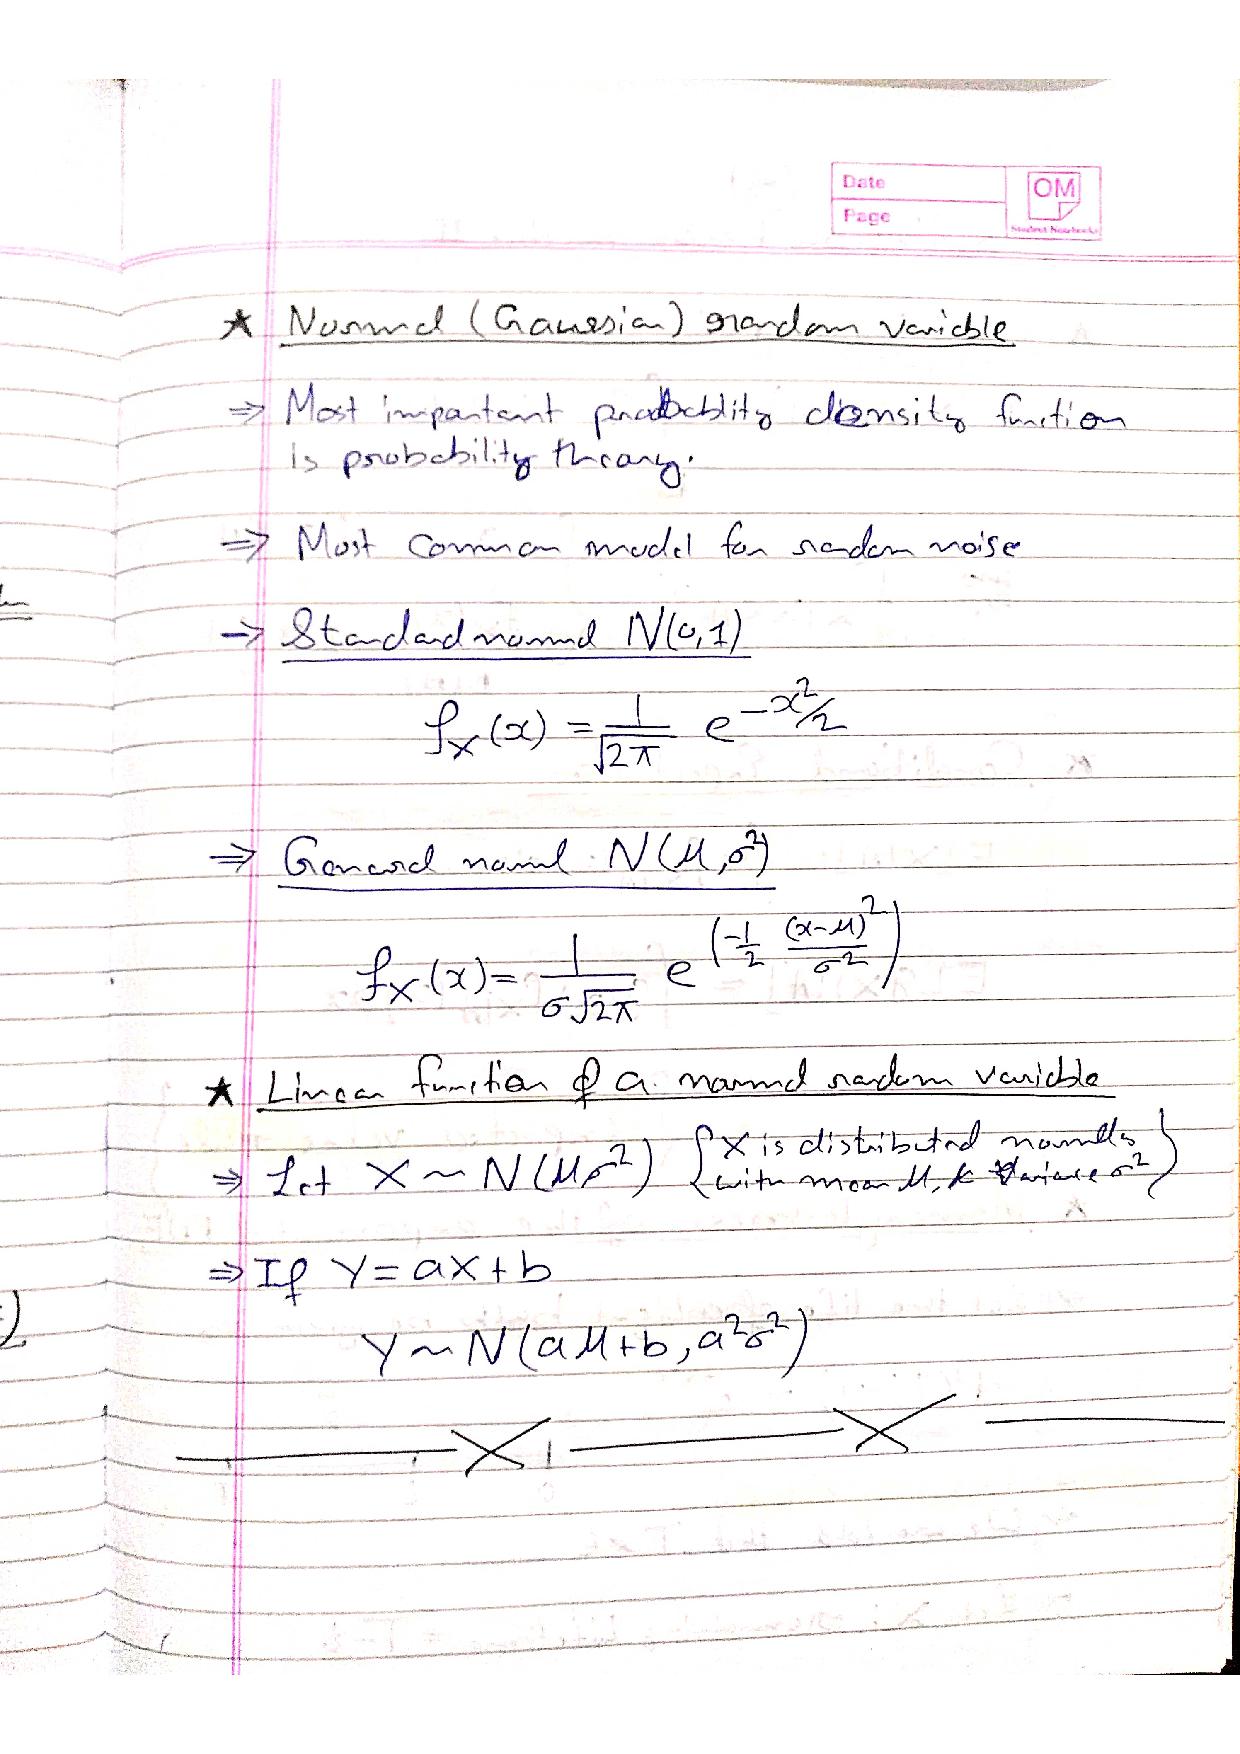 Date
OM
Page
Student Notebooks
★ Normal (Gaussian) random variable
⇒ Most important probability density function
is probability theory.
⇒ Most common model for random noise
→ Standard normal N(0,1)
f_X(x) = 1/√2π e^(-x²/2)
⇒ General normal N(μ,σ²)
f_X(x) = 1/σ√2π e^(-1/2 (x-μ)²/σ²)
★ Linear function of a normal random variable
⇒ Let X ~ N(μ,σ²) {X is distributed normally
with mean μ, & Variance σ²}
⇒ If Y = aX + b
Y ~ N(aμ+b, a²σ²)